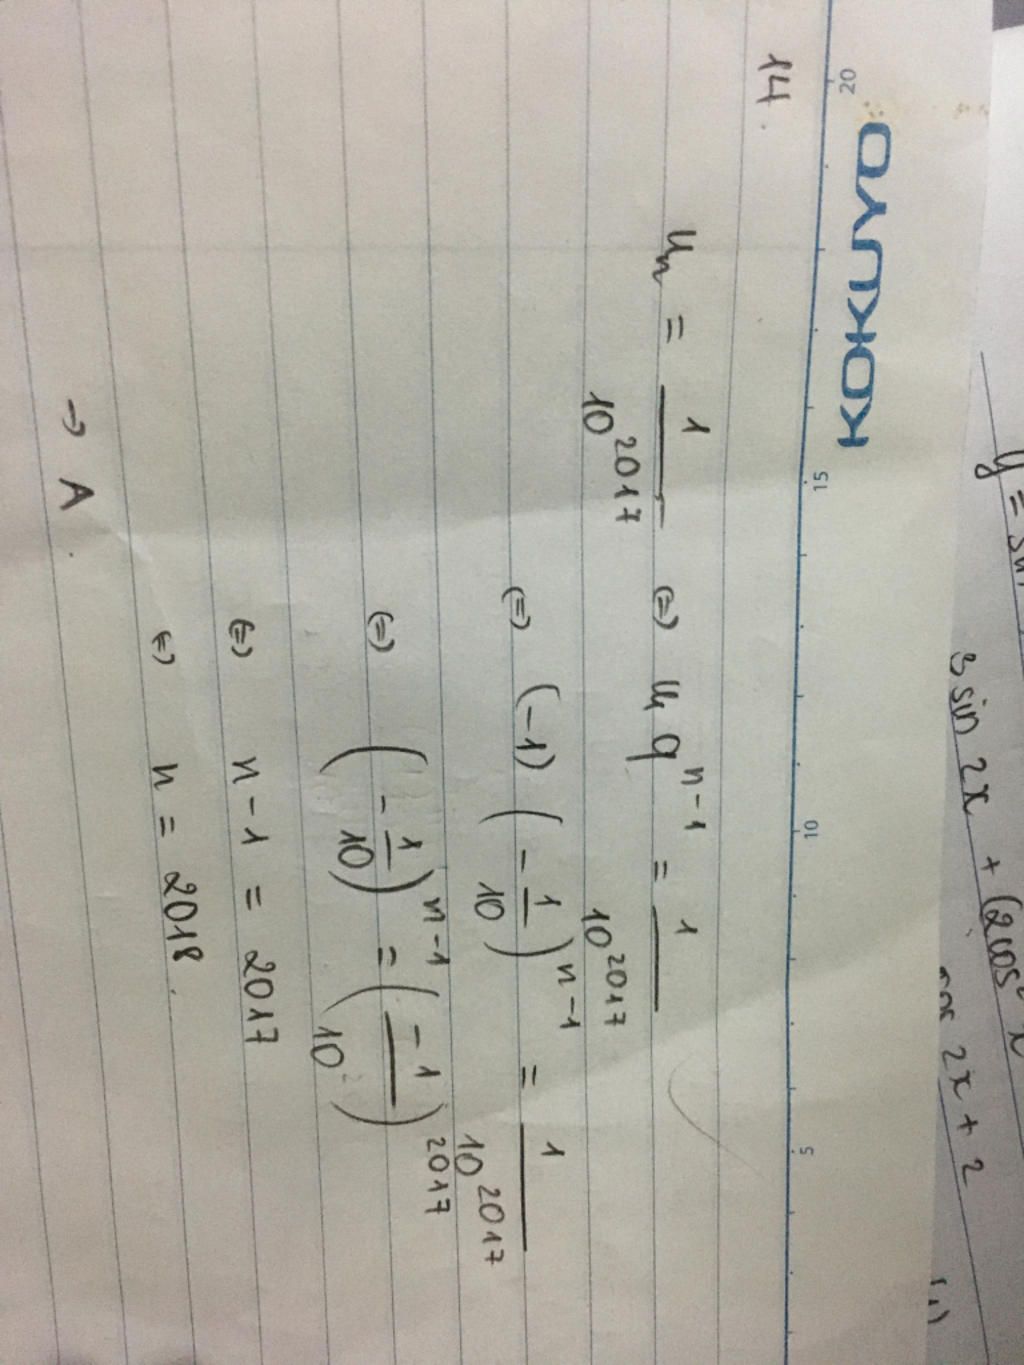 y = sin
3 sin 2x + (2cos² x
cos 2x + 2
KOKUYO
20 15 10 5
14.
uₙ = 1/10²⁰¹⁷ (=) u₁qⁿ⁻¹ = 1/10²⁰¹⁷
(=) (-1) (-1/10)ⁿ⁻¹ = 1/10²⁰¹⁷
(=) (-1/10)ⁿ⁻¹ = (-1/10)²⁰¹⁷
(=) n - 1 = 2017
(=) n = 2018.
→ A.